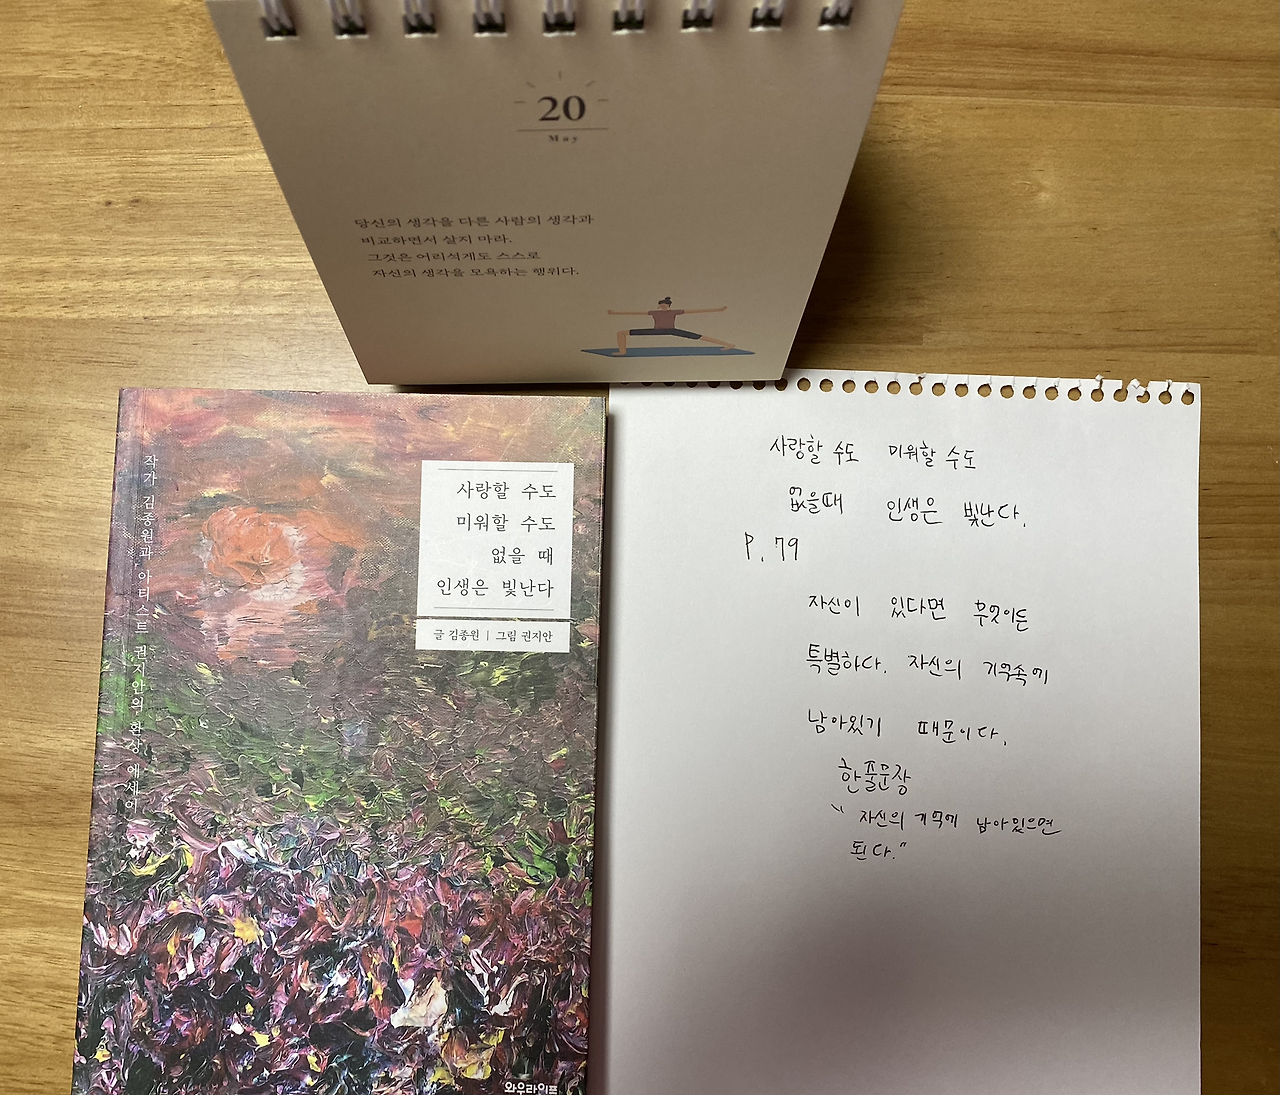 20
May
당신의 생각을 다른 사람의 생각과
비교하면서 살지 마라.
그것은 어리석게도 스스로
자신의 생각을 모욕하는 행위다.
작가 김종원과 아티스트 권지안의 환상 에세이
사랑할 수도
미워할 수도
없을 때
인생은 빛난다
글 김종원 | 그림 권지안
와우라이프
사랑할 수도 미워할 수도
없을때 인생은 빛난다.
P. 79
자신이 있다면 무엇이든
특별하다. 자신의 기억속에
남아있기 때문이다.
한줄문장
"자신의 기억에 남아있으면
된다."